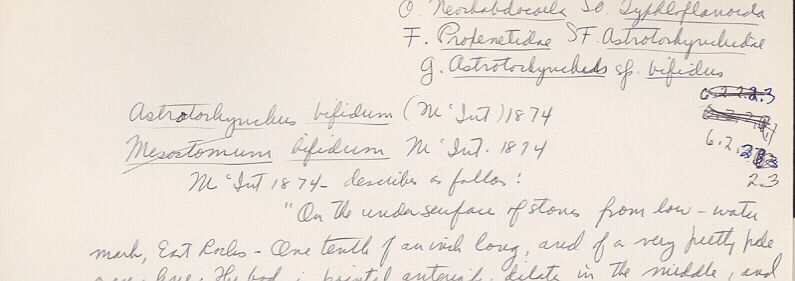 O. Neorhabdocoela SO. Typhloplanoida
F. Proxenetidae SF. Astrotorhynchidae
g. Astrotorhynchus sp. bifidus
Astrotorhynchus bifidum (McInt) 1874
Mesostomum bifidum McInt. 1874
6.2.2.3
McInt 1874 - describes as follos:
2.3
"On the under surface of stones from low-water
mark, East Rocks - One tenth of an inch long, and of a very pretty pale
in the middle, and